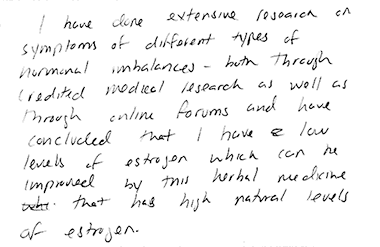 I have done extensive research on
symptoms of different types of
hormonal imbalances - both through
credited medical research as well as
through online forums and have
concluded that I have low
levels of estrogen which can be
improved by this herbal medicine
that has high natural levels
of estrogen.